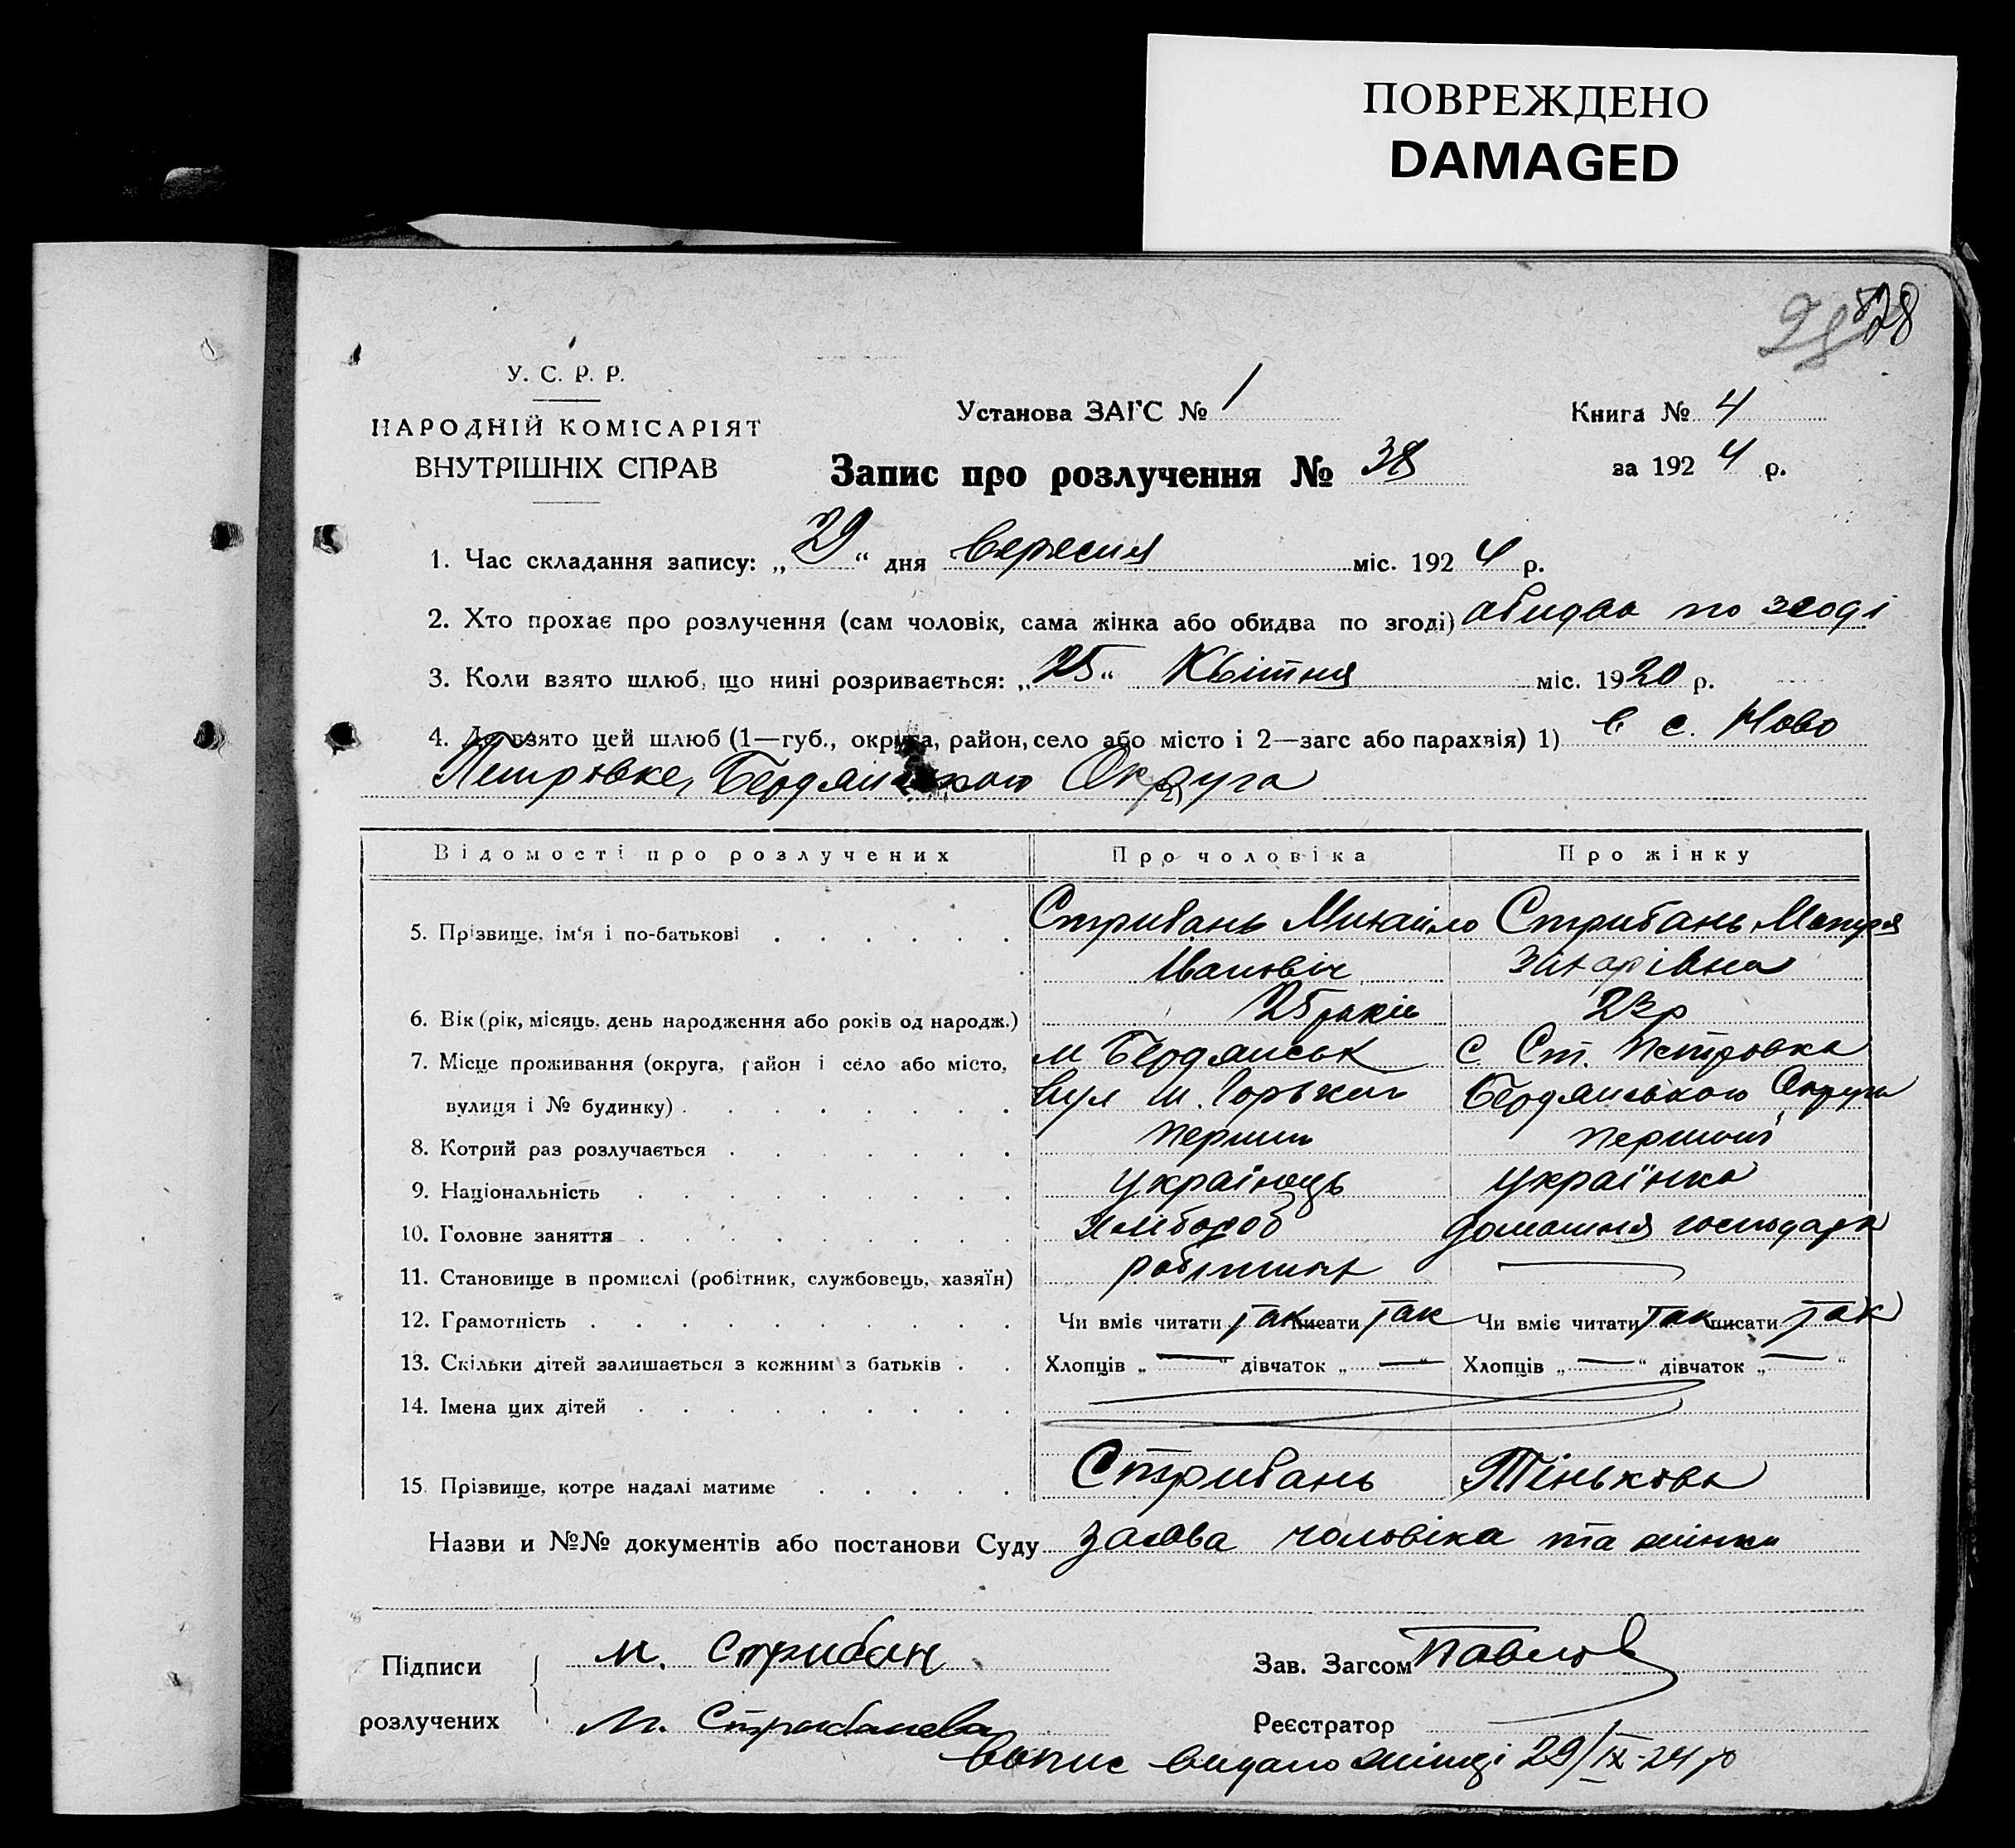 ПОВРЕЖДЕНО
DAMAGED
28
У. С. Р. Р.
НАРОДНІЙ КОМІСАРІЯТ
ВНУТРІШНІХ СПРАВ
Установа ЗАГС № 1
Книга № 4
Запис про розлучення № 38
за 1924 р.
1. Час складання запису: „29“ дня вересня міс. 1924 р.
2. Хто прохає про розлучення (сам чоловік, сама жінка або обидва по згоді) обидва по згоді
3. Коли взято шлюб, що нині розривається: „25“ Квітня міс. 1920 р.
4. Де взято цей шлюб (1—губ., округа, район, село або місто і 2—загс або парахвія) 1) в с. Ново
Петровке, Бердянського Округа
Відомості про розлучених Про чоловіка Про жінку
5. Прізвище, ім‘я і по-батькові Стрибань Михайло Стрибань Мотря
Івановіч Захарівна
6. Вік (рік, місяць, день народження або років од народж.) 25 років 23 р
7. Місце проживання (округа, район і село або місто, м Бердянськ с. Ст. Петровка
вулиця і № будинку) вул М. Горького Бердянського Округи
8. Котрий раз розлучається перший перший
9. Національність українець українка
10. Головне заняття хлібороб домашня господарк
11. Становище в промислі (робітник, службовець, хазяїн) робітник —
12. Грамотність Чи вміє читати так писати так Чи вміє читати так писати так
13. Скільки дітей залишається з кожним з батьків Хлопців „—“ дівчаток „—“ Хлопців „—“ дівчаток „—“
14. Імена цих дітей
15. Прізвище, котре надалі матиме Стрибань Тінькова
Назви и №№ документів або постанови Суду заява чоловіка та жінки
Підписи М. Стрибан Зав. Загсом Павлов
розлучених М. Стрибанева Реєстратор
видано жінці 29/IX-24 р